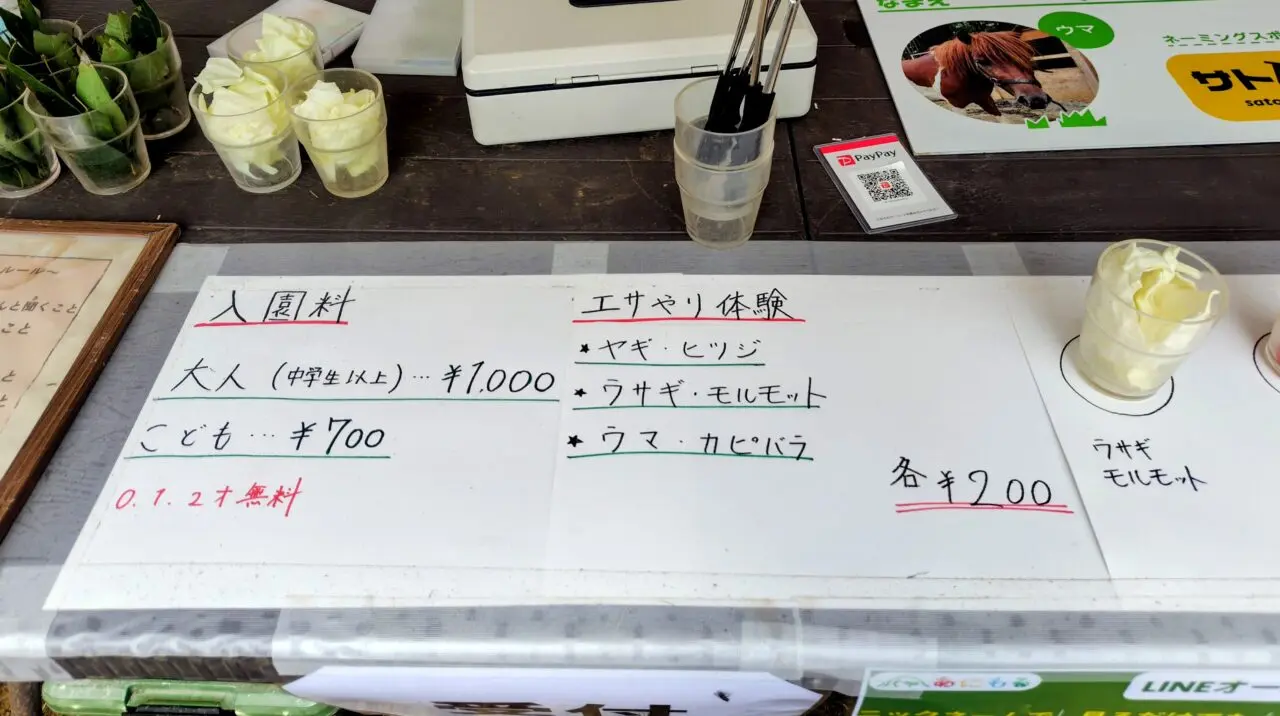 なまえ
ウマ
ネーミングスポ
サト
sato
PayPay
ルール～
んと聞くこと
こと
と
と
入園料
大人(中学生以上)…¥1,000
こども…¥700
0.1.2才無料
エサやり体験
★ヤギ・ヒツジ
★ウサギ・モルモット
★ウマ・カピバラ
各¥200
ウサギ
モルモット
受付
LINEオー